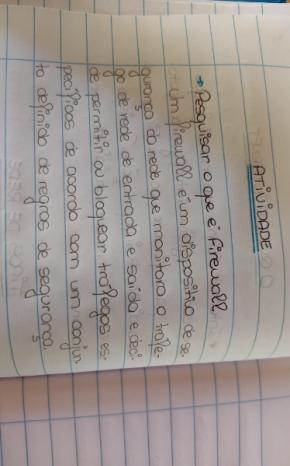 ATIVIDADE
→ Pesquisar o que é firewall.
Um firewall é um dispositivo de se-
gurança da rede que monitora o tráfe-
go de rede de entrada e saída e deci-
de permitir ou bloquear tráfegos es-
pecíficos de acordo com um conjun-
to definido de regras de segurança.